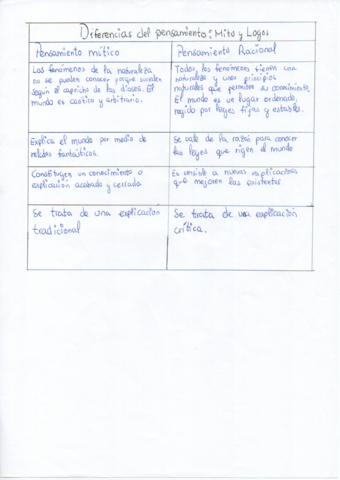 Diferencias del pensamiento: Mito y Logos
Pensamiento mítico
Pensamiento Racional
Los fenómenos de la naturaleza
no se pueden conocer porque suceden
según el capricho de los dioses. El
mundo es caótico y arbitrario.
Todos los fenómenos tienen una
naturaleza y unos principios
naturales que permiten su conocimiento.
El mundo es un lugar ordenado,
regido por leyes fijas y estables.
Explica el mundo por medio de
relatos fantásticos.
Se vale de la razón para conocer
las leyes que rigen el mundo
Constituyen un conocimiento o
explicación acabada y cerrada
Es sensible a nuevas explicaciones
que mejoren las existentes
Se trata de una explicación
tradicional
Se trata de una explicación
crítica.